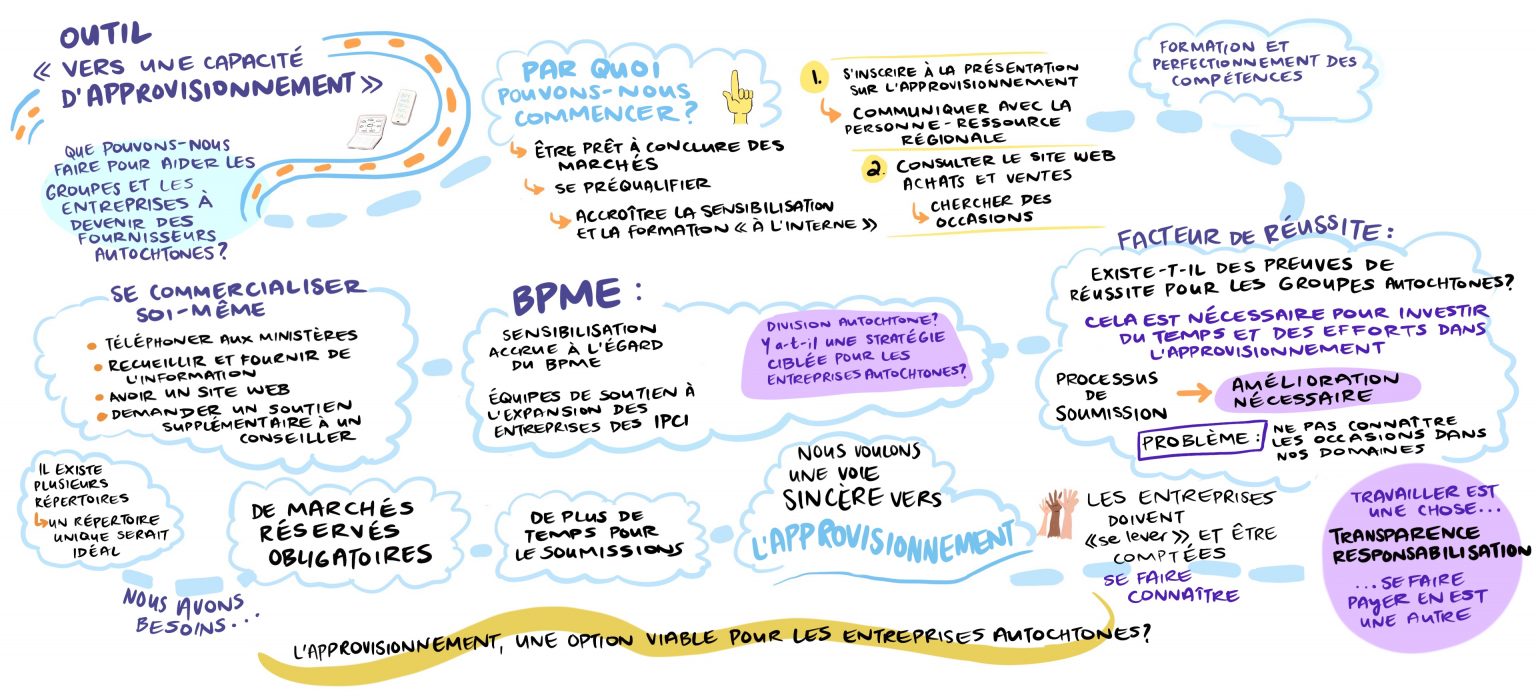 OUTIL
« VERS UNE CAPACITÉ
D'APPROVISIONNEMENT »
QUE POUVONS-NOUS
FAIRE POUR AIDER LES
GROUPES ET LES
ENTREPRISES À
DEVENIR DES
FOURNISSEURS
AUTOCHTONES?
PAR QUOI
POUVONS-NOUS
COMMENCER?
ÊTRE PRÊT À CONCLURE DES
MARCHÉS
SE PRÉQUALIFIER
ACCROÎTRE LA SENSIBILISATION
ET LA FORMATION « À L'INTERNE »
1. S'INSCRIRE À LA PRÉSENTATION
SUR L'APPROVISIONNEMENT
COMMUNIQUER AVEC LA
PERSONNE-RESSOURCE
RÉGIONALE
2. CONSULTER LE SITE WEB
ACHATS ET VENTES
CHERCHER DES
OCCASIONS
FORMATION ET
PERFECTIONNEMENT DES
COMPÉTENCES
FACTEUR DE RÉUSSITE:
EXISTE-T-IL DES PREUVES DE
RÉUSSITE POUR LES GROUPES AUTOCHTONES?
CELA EST NÉCESSAIRE POUR INVESTIR
DU TEMPS ET DES EFFORTS DANS
L'APPROVISIONNEMENT
PROCESSUS
DE
SOUMISSION
AMÉLIORATION
NÉCESSAIRE
PROBLÈME:
NE PAS CONNAÎTRE
LES OCCASIONS DANS
NOS DOMAINES
BPME:
SENSIBILISATION
ACCRUE À L'ÉGARD
DU BPME
ÉQUIPES DE SOUTIEN À
L'EXPANSION DES
ENTREPRISES DES IPCI
DIVISION AUTOCHTONE?
Y a-t-il UNE STRATÉGIE
CIBLÉE POUR LES
ENTREPRISES AUTOCHTONES?
SE COMMERCIALISER
SOI-MÊME
TÉLÉPHONER AUX MINISTÈRES
RECUEILLIR ET FOURNIR DE
L'INFORMATION
AVOIR UN SITE WEB
DEMANDER UN SOUTIEN
SUPPLÉMENTAIRE À UN
CONSEILLER
IL EXISTE
PLUSIEURS
RÉPERTOIRES
UN RÉPERTOIRE
UNIQUE SERAIT
IDÉAL
NOUS AVONS
BESOINS...
DE MARCHÉS
RÉSERVÉS
OBLIGATOIRES
DE PLUS DE
TEMPS POUR
LE SOUMISSIONS
NOUS VOULONS
UNE VOIE
SINCÈRE VERS
L'APPROVISIONNEMENT
LES ENTREPRISES
DOIVENT
«se lever», ET ÊTRE
COMPTÉES
SE FAIRE
CONNAÎTRE
TRAVAILLER EST
UNE CHOSE...
TRANSPARENCE
RESPONSABILISATION
...SE FAIRE
PAYER EN EST
UNE AUTRE
L'APPROVISIONNEMENT, UNE OPTION VIABLE POUR LES ENTREPRISES AUTOCHTONES?